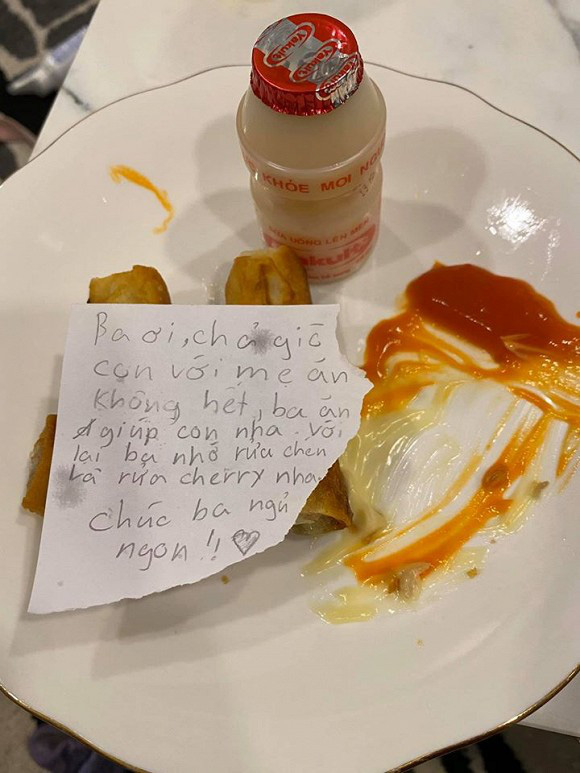 Yakult
Yakult
KHỎE MỌI NG
UỐNG LÊN MEN
Yakult
Ba ơi, chả giò
con với mẹ ăn
không hết, ba ăn
giúp con nha. với
lại ba nhớ rửa chén
và rửa cherry nha.
chúc ba ngủ
ngon!! ♡